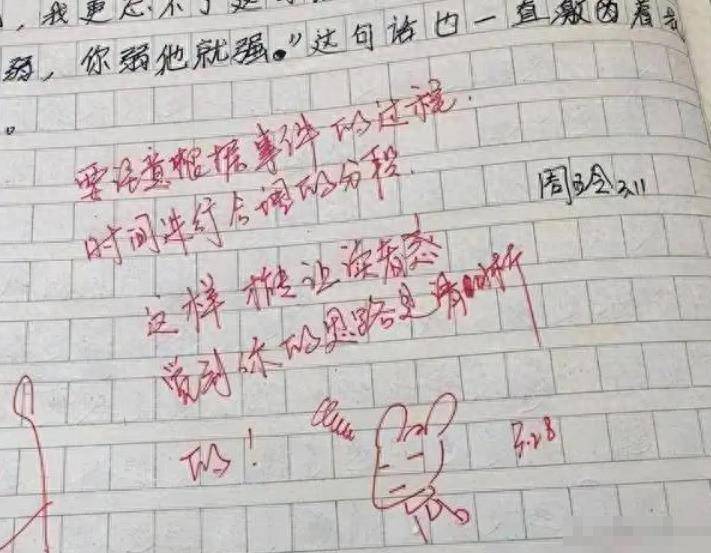 ，我更忘不了这
弱，你弱他就强。”这句话也一直激励着我
。
要注意根据事件的过程.
时间进行合理的分段.
周 311
这样 能让读者感
受到你的思路是清晰
的！
5.28